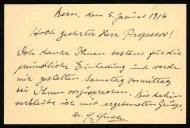 Bern, den 5. Januar 1916
Hoch geehrter Herr Professor!
Ich danke Ihnen bestens für die
freundliche Einladung und werde
mir gestatten Samstag vormittag
bei Ihnen vorzusprechen. Bis dahin
verbleibe ich mit ergebenstem Grusse
Dr.